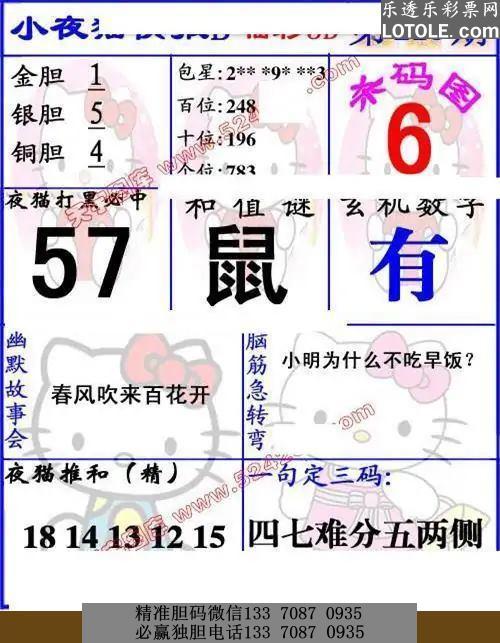 乐透乐彩票网
LOTOLE.COM
小夜猫
金胆 1
银胆 5
铜胆 4
包星:2** *9* **3
百位:248
十位:196
个位:783
杀码图
6
夜猫打黑必中
57
和值谜
鼠
玄机数字
有
幽默故事会
春风吹来百花开
脑筋急转弯
小明为什么不吃早饭?
夜猫推和(精)
18 14 13 12 15
一句定三码:
四七难分五两侧
精准胆码微信133 7087 0935
必赢独胆电话133 7087 0935